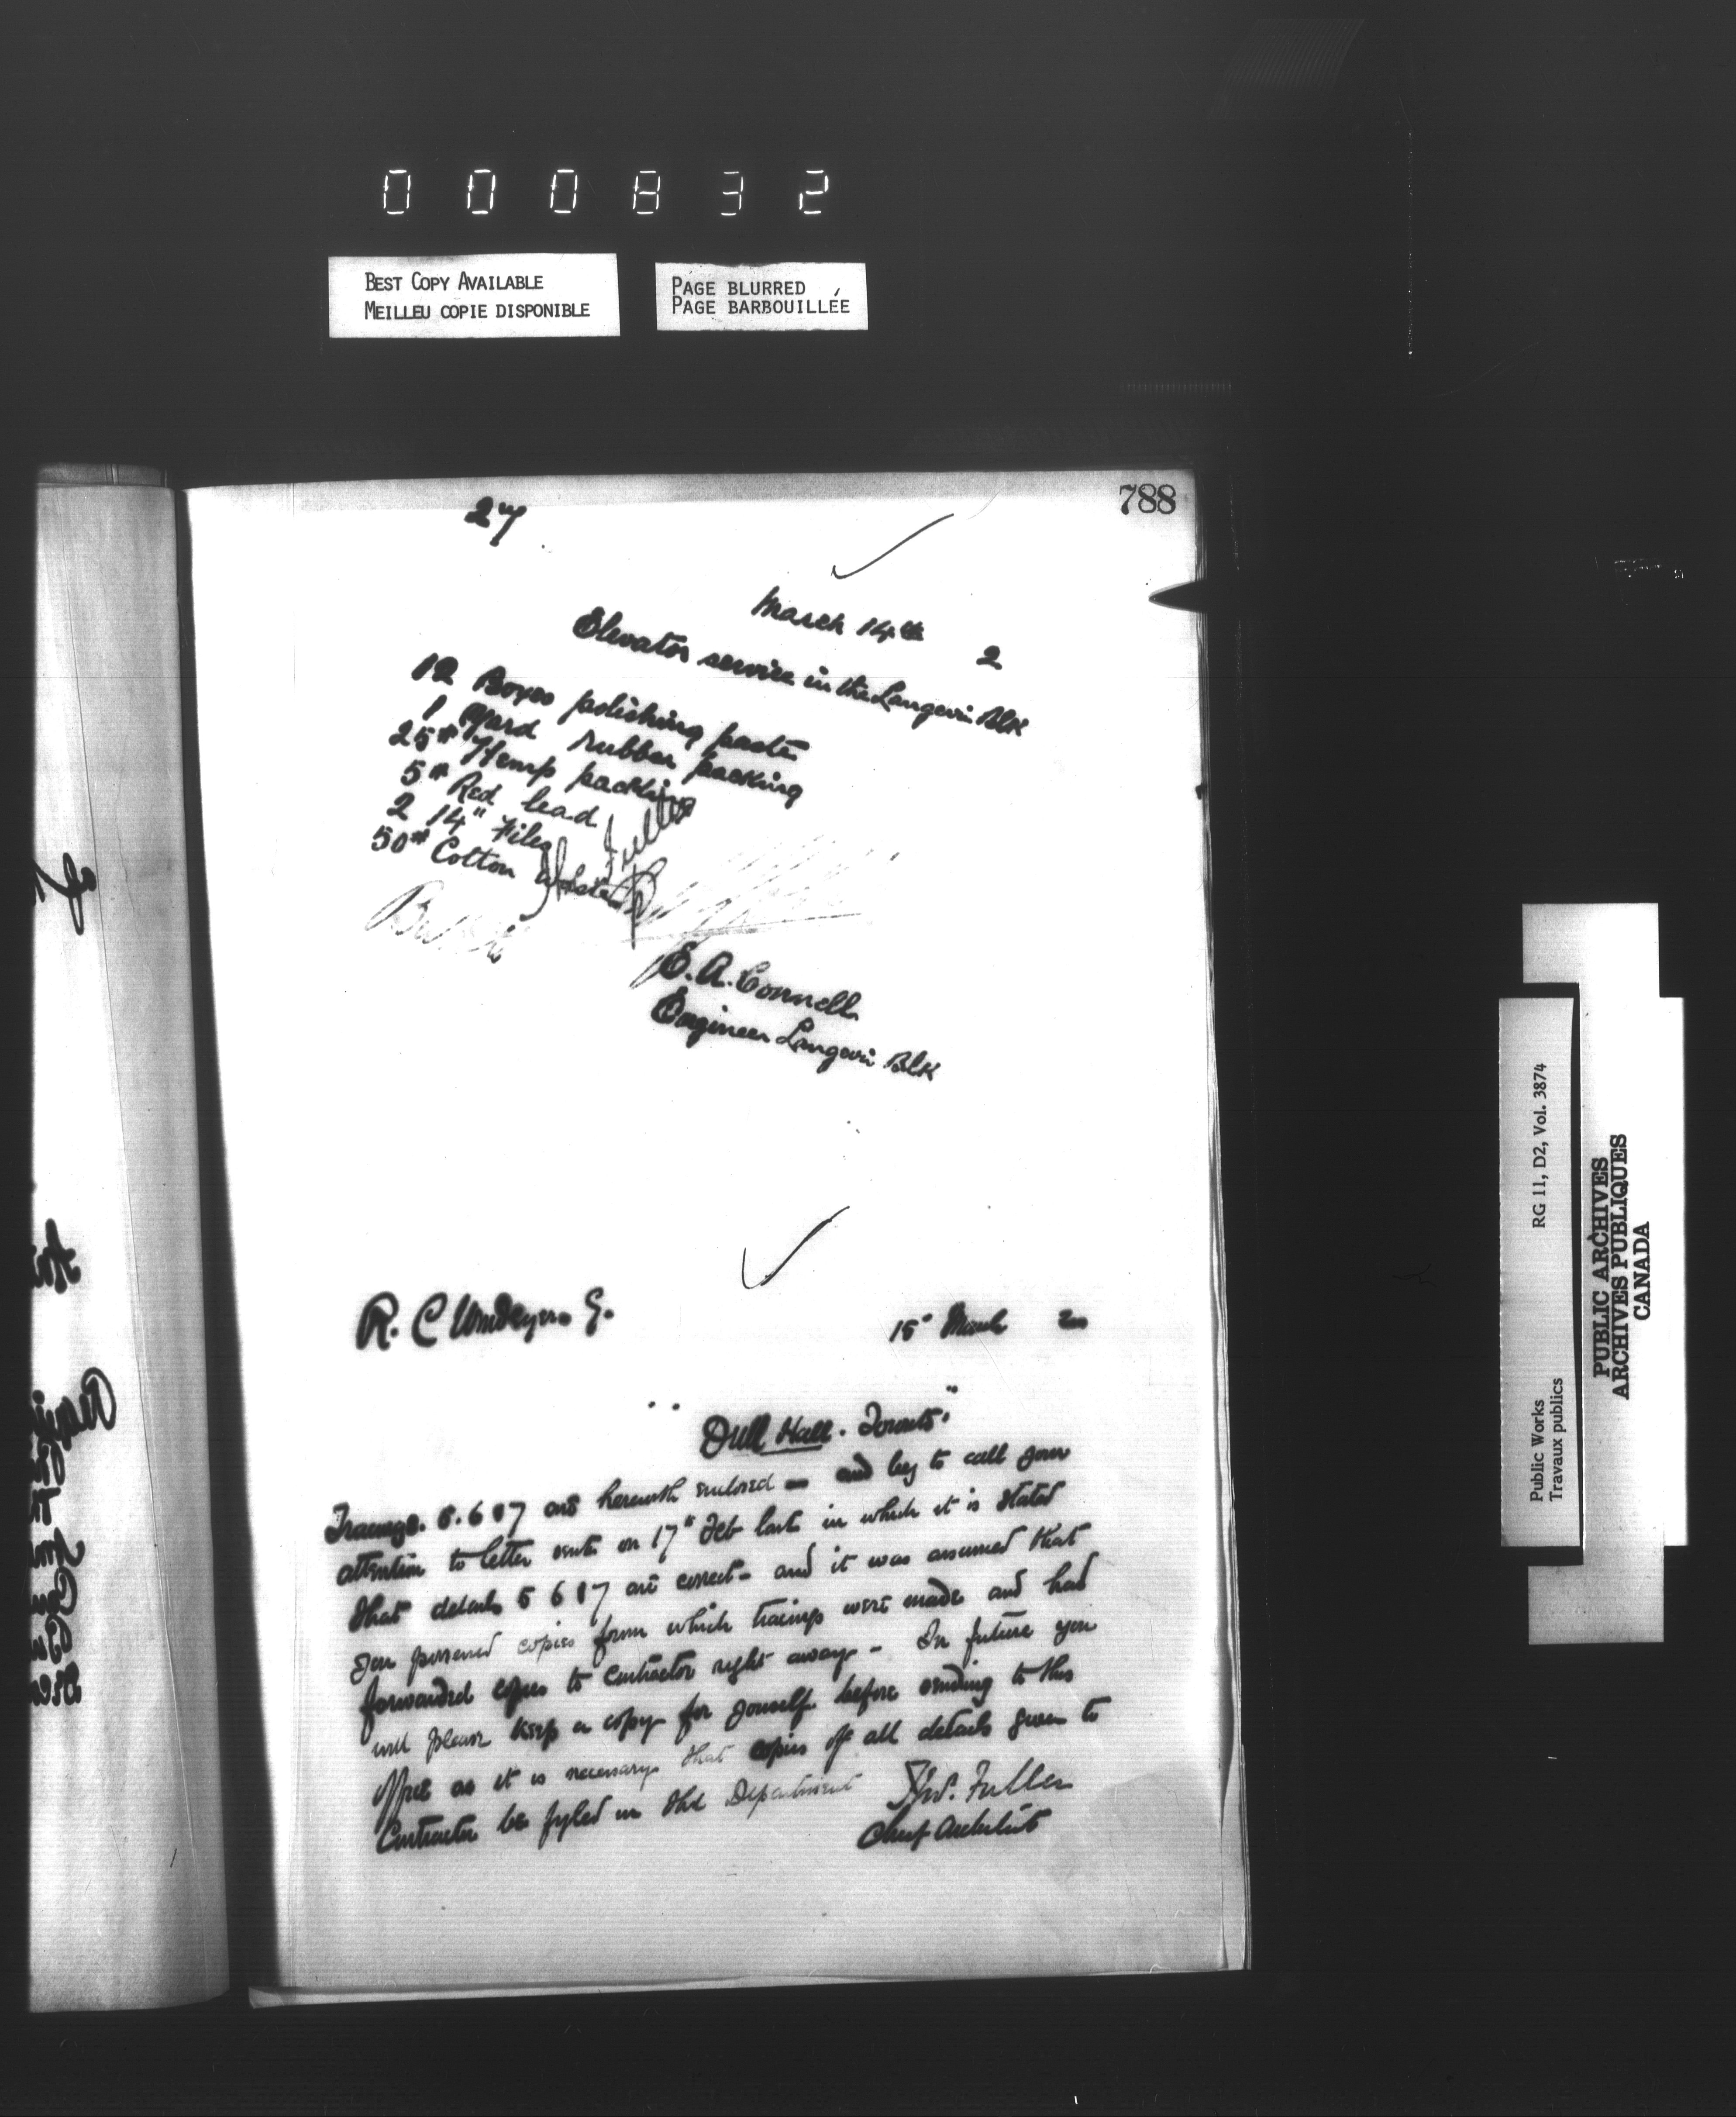 000832
BEST COPY AVAILABLE
MEILLEU COPIE DISPONIBLE
PAGE BLURRED
PAGE BARBOUILLÉE
788
27
March 14th 2
Elevator service in the Langevin Blk
12 Boxes polishing paste
1 yard rubber packing
25# Hemp packing
5# Red lead
2 14" Files
50# Cotton Waste
Fuller
E. A. Cornell
Engineer Langevin Blk
R. C. Windeyer
15" March 2
"Drill Hall. Toronto"
Tracings. 5. 6 & 7 are herewith enclosed - and beg to call your
attention to letter sent on 17" Feb last in which it is stated
that details 5 6 & 7 are correct - and it was assumed that
you possessed copies from which tracings were made and had
forwarded copies to Contractor right away - In future you
will please keep a copy for yourself before sending to this
office as it is necessary that copies of all details given to
Contractor be fyled in the Department
Thos. Fuller
Chief Architect
Public Works
Travaux publics
RG 11, D2, Vol. 3874
PUBLIC ARCHIVES
ARCHIVES PUBLIQUES
CANADA